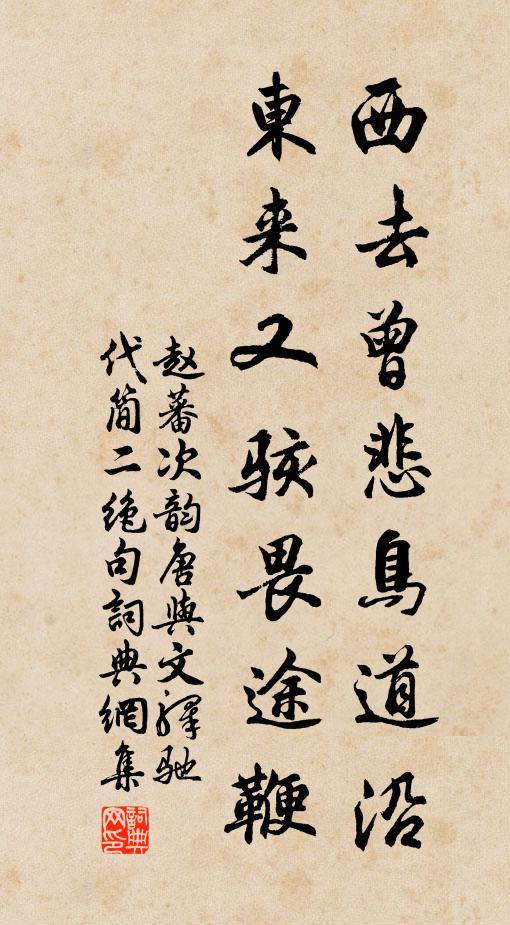 西去曾悲鳥道沿
東来又駭畏途鞭
趙蕃次韵唐與文驛馳
代簡二絶句詞典網集
詞典网印